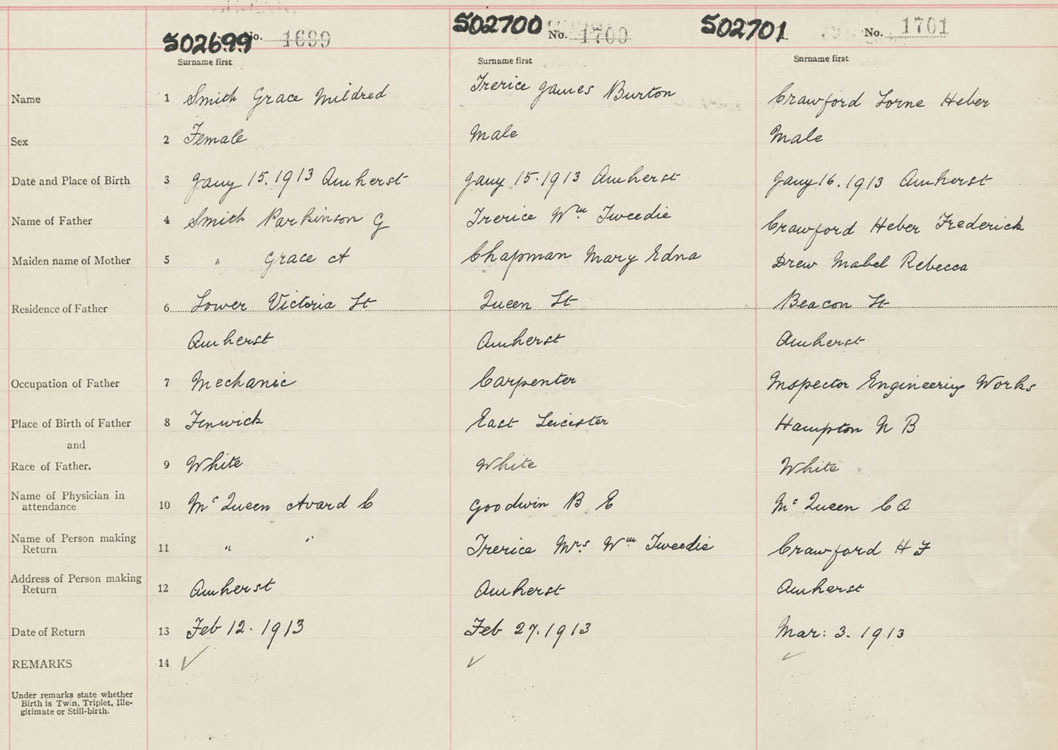 502699 No. 1699 502700 No. 1700 502701 No. 1701
Surname first Surname first Surname first
Name 1 Smith Grace Mildred Trerice James Burton Crawford Lorne Heber
Sex 2 Female Male Male
Date and Place of Birth 3 Jany 15. 1913 Amherst Jany 15. 1913 Amherst Jany 16. 1913 Amherst
Name of Father 4 Smith Parkinson G Trerice Wm Tweedie Crawford Heber Frederick
Maiden name of Mother 5 " Grace A Chapman Mary Edna Drew Mabel Rebecca
Residence of Father 6 Lower Victoria St Queen St Beacon St
Amherst Amherst Amherst
Occupation of Father 7 Mechanic Carpenter Inspector Engineering Works
Place of Birth of Father 8 Fenwick East Leicister Hampton N B
and
Race of Father. 9 White White White
Name of Physician in
attendance 10 Mc Queen Avard C Goodwin B E Mc Queen C A
Name of Person making
Return 11 " " Trerice Mrs Wm Tweedie Crawford H F
Address of Person making
Return 12 Amherst Amherst Amherst
Date of Return 13 Feb 12. 1913 Feb 27. 1913 Mar: 3. 1913
REMARKS 14 ✓ ✓ ✓
Under remarks state whether
Birth is Twin, Triplet, Ille-
gitimate or Still-birth.